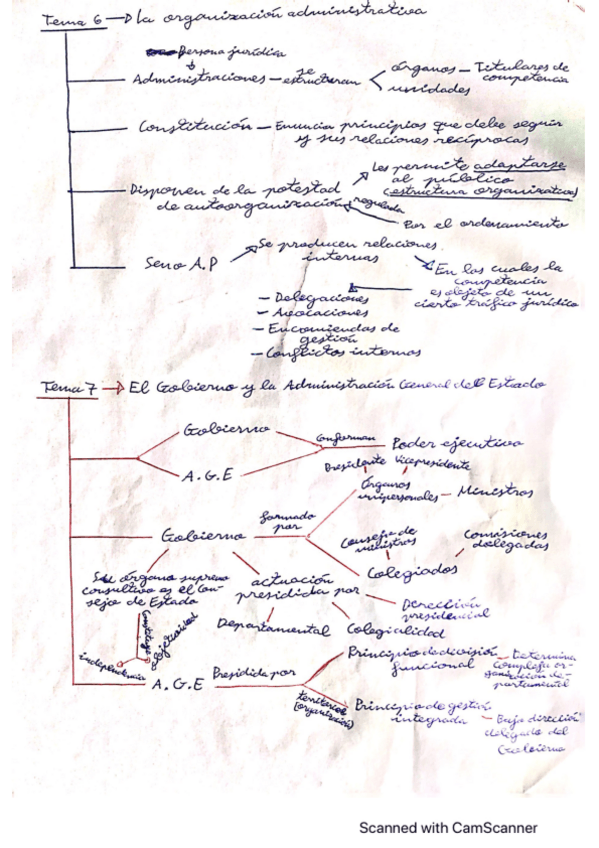 Tema 6 → La organización administrativa
Persona jurídica
Administraciones - se estructuran
órganos - Titulares de competencia
unidades
Constitución - Enuncia principios que debe seguir
y sus relaciones recíprocas
Disponen de la potestad
de autoorganización
Les permite adaptarse
al público
(estructura organizativa)
regulada
Por el ordenamiento
Seno A.P
Se producen relaciones
internas
En las cuales la
competencia
es objeto de un
cierto tráfico jurídico
- Delegaciones
- Avocaciones
- Encomiendas de
gestión
- Conflictos internos
Tema 7 → El Gobierno y la Administración General del Estado
Gobierno
A.G.E
Conforman
Poder ejecutivo
Presidente Vicepresidente
órganos
unipersonales - Ministros
Gobierno
formado
por
Consejo de
ministros
Comisiones
delegadas
Colegiados
Su órgano supremo
consultivo es el Con-
sejo de Estado
actuación
presidida por
Dirección
presidencial
Departamental
Colegialidad
objetividad
independencia
A.G.E
Presidida por
Principio de división
funcional
Determina
compleja or-
ganización de-
partamental
territorial
(organización)
Principio de gestión
integrada
Bajo dirección
delegado del
Gobierno
Scanned with CamScanner